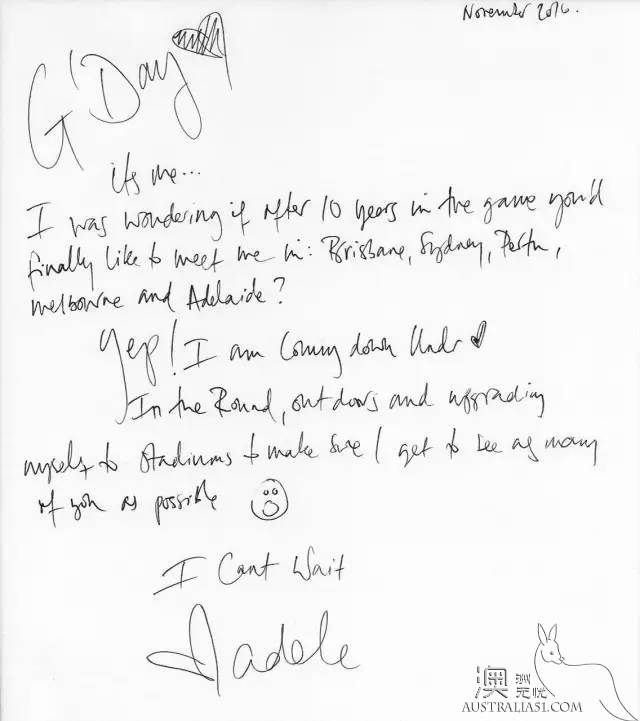 November 2016.
G'Day
its me...
I was wondering if after 10 years in the game you'd
finally like to meet me in: Brisbane, Sydney, Perth,
melbourne and Adelaide?
Yep! I am Coming down Under
In the Round, outdoors and upgrading
myself to stadiums to make sure I get to see as many
of you as possible
I Cant Wait
adele
澳洲无忧
AUSTRALIA51.COM